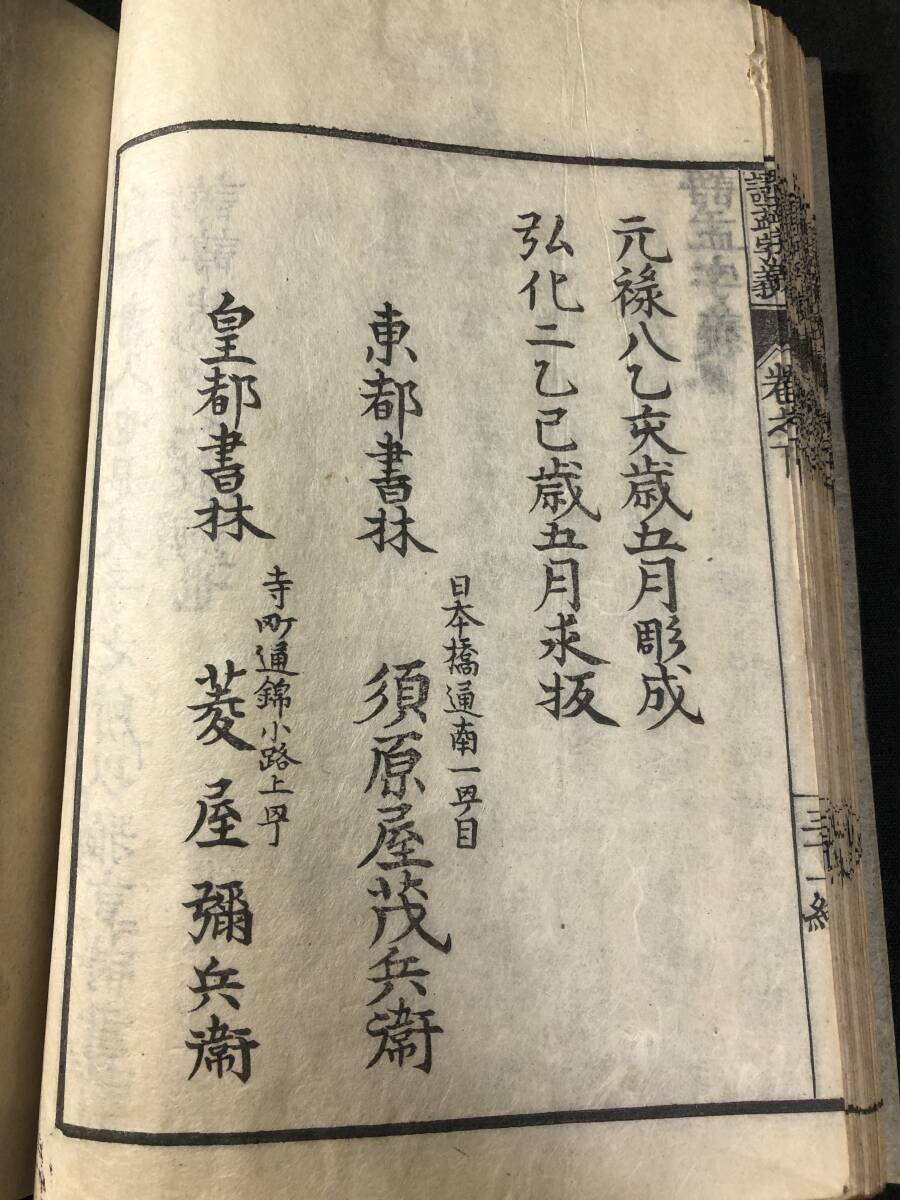 語孟字義
卷之下
元禄八乙亥歳五月彫成
弘化二乙巳歳五月求板
日本橋通南一町目
東都書林
須原屋茂兵衛
寺町通錦小路上町
皇都書林
菱屋彌兵衛